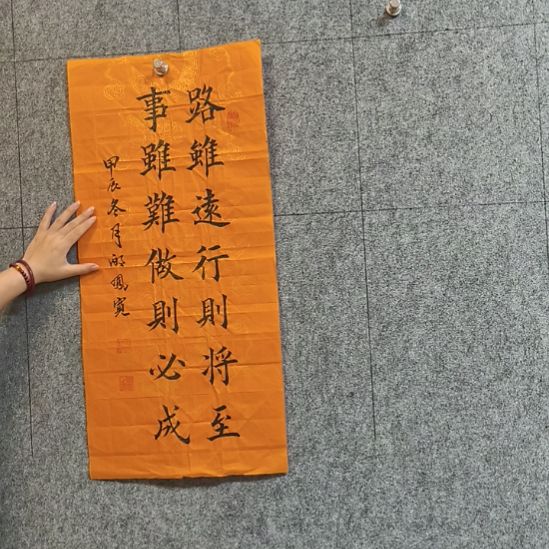 路雖遠行則將至
事雖難做則必成
甲辰冬月